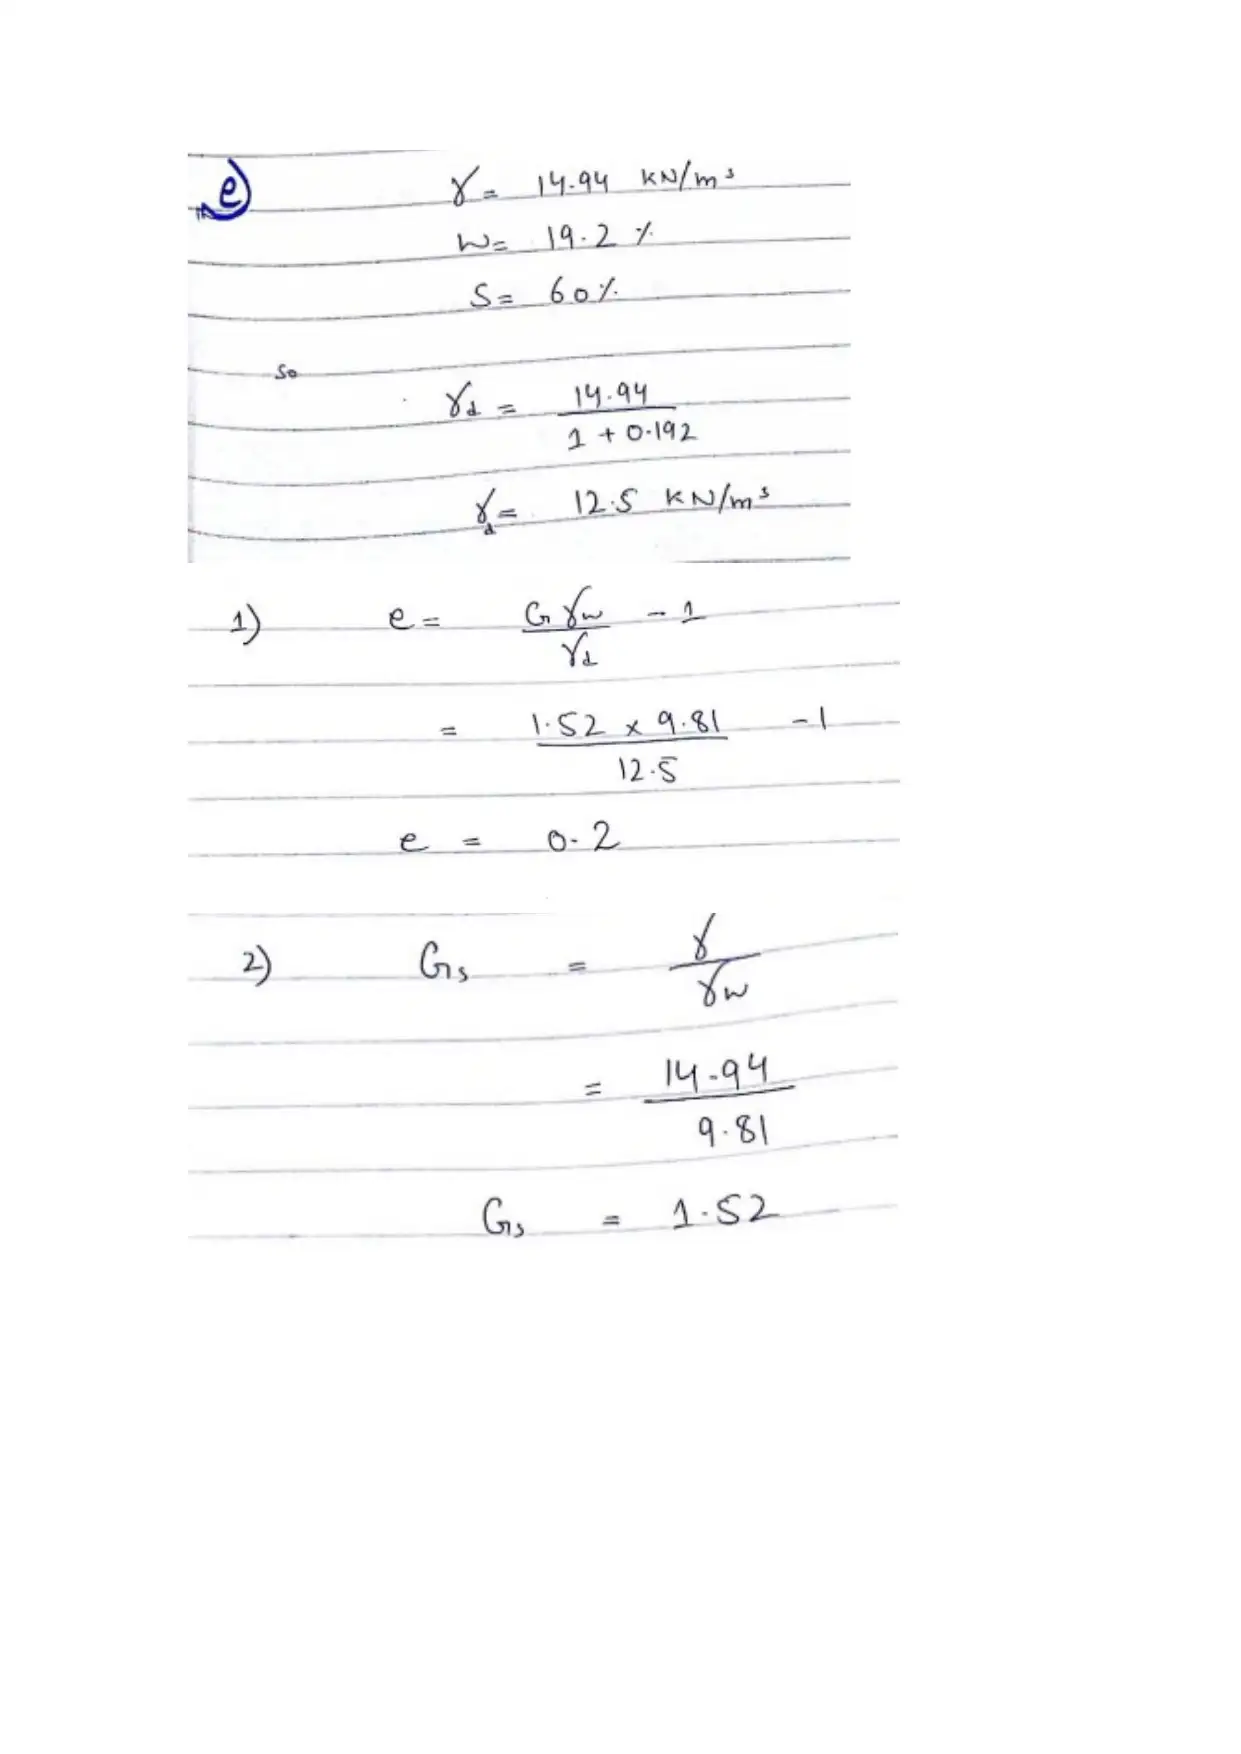 e)
γ = 14.94 KN/m³
w = 19.2 %
S = 60%
So
γd = 14.94 / 1 + 0.192
γd = 12.5 KN/m³
1) e = G γw / γd - 1
= 1.52 x 9.81 / 12.5 - 1
e = 0.2
2) Gs = γ / γw
= 14.94 / 9.81
Gs = 1.52